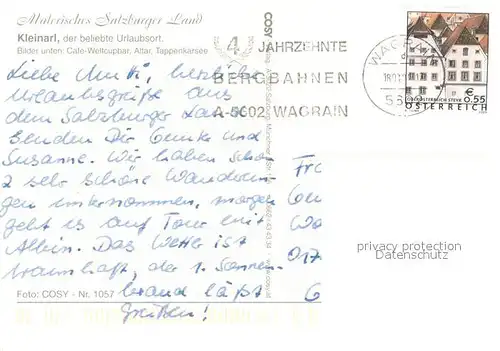 Malerisches Salzburger Land
Kleinarl, der beliebte Urlaubsort.
Bilder unten: Cafe-Weltcupbar, Altar, Tappenkarsee
COSY
4 JAHRZEHNTE
BERGBAHNEN
A-5602 WAGRAIN
WAGRAIN
€ 0,55
ÖSTERREICH
Liebe herzliche
Urlaubsgrüße aus
dem Salzburger Land
senden Dir und
Susanne. Wir haben schon
2 sehr schöne Wanderun-
gen unternommen, morgen
geht es auf Tour mit
Albin. Das Wetter ist
traumhaft, der 1. Sonnen-
brand läßt
Grüßen!
Foto: COSY - Nr. 1057
017
privacy protection
Datenschutz